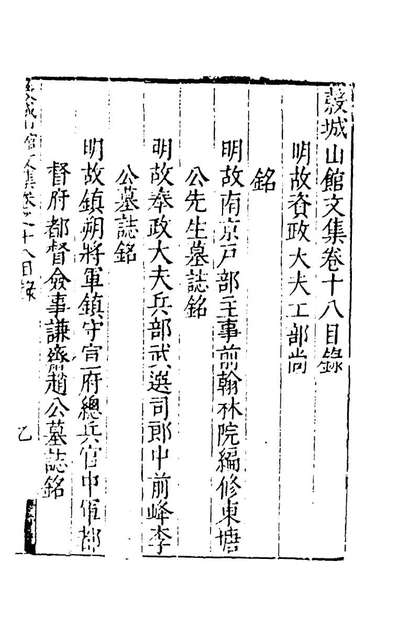 穀城山館文集卷十八目錄
明故資政大夫工部尚
銘
明故南京戶部主事前翰林院編修東塘
公先生墓誌銘
明故奉政大夫兵部武選司郎中前峰李
公墓誌銘
明故鎮朔將軍鎮守宣府總兵官中軍都
督府都督僉事謙齋趙公墓誌銘
城山館文集卷之十八目錄
乙